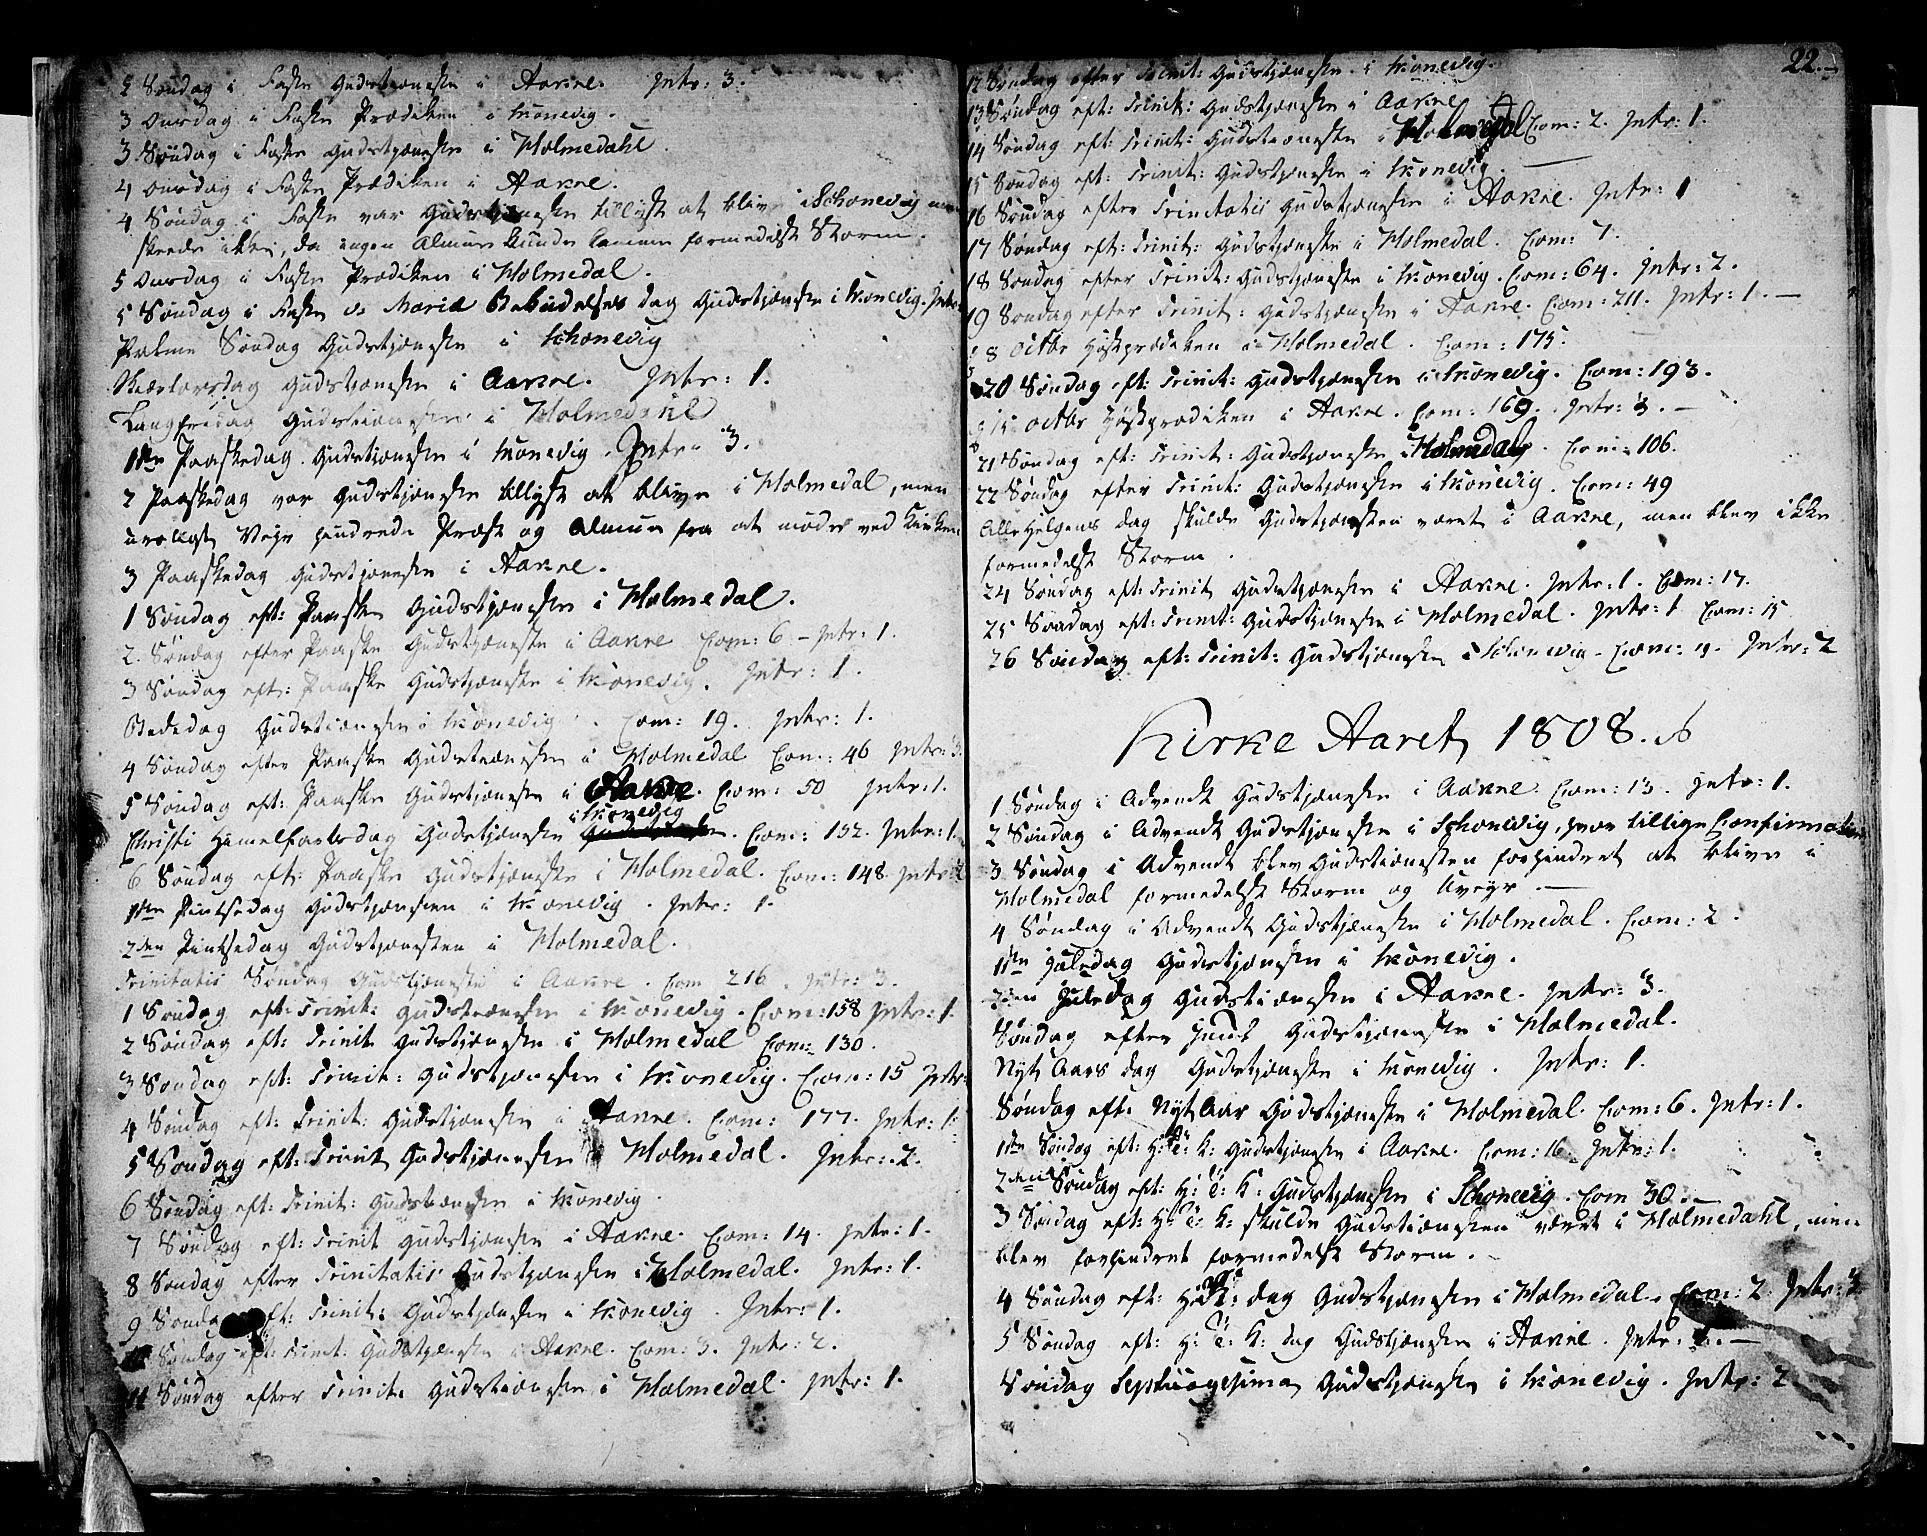 2 Søndag i Faste Gudstjænesten i Aakre. Intr: 3.
3 Onsdag i Faste Prædiken i Skonevig.
3 Søndag i Faste Gudstjænesten i Holmedahl.
4 Onsdag i Faste Prædiken i Aakre.
4 Søndag i Faste var Gudstjænesten tillyst at blive i Schonevig men
skeede ikke, da ingen Almue kunde komme formedelst Storm.
5 Onsdag i Faste Prædiken i Holmedal.
5 Søndag i Faste Mariæ Bebudelses dag Gudstjænesten i Skonevig. Intr:
Palme Søndag Gudstjænesten i Schonevig
Skiærtorsdag Gudstjænesten i Aakre. Intr: 1.
Langfredag Gudstiænesten i Holmedahl
1ste Paaskedag Gudstiænesten i Skonevig. Intr: 3.
2 Paaskedag var Gudstjænesten tillyst at blive i Holmedal, men
uroligt Vejr hindrede Præst og Almue fra at møde ved Kirken.
3 Paaskedag Gudstjænesten i Aakre.
1 Søndag eft: Paaske Gudstjænesten i Holmedal.
2. Søndag efter Paaske Gudstjæneste i Aakre Com: 6 - Intr: 1.
3 Søndag eft: Paaske Gudstjæneste i Skonevig. Intr: 1.
Bededag Gudstiænesten i Skonevig. Com: 19. Intr: 1.
4 Søndag efter Paaske Gudstiænesten i Holmedal Com: 46 Intr: 3
5 Søndag eft: Paaske Gudstjænesten i Aakre. Com: 50 Intr: 1.
Christi Himelfartsdag Gudstjænesten i Skonevig. Com: 152. Intr: 1.
6 Søndag eft: Paaske Gudstjæneste i Holmedal. Com: 148. Intr:
1ste Pintsedag Gudstjænesten i Skonevig. Intr: 1.
2den Pintsedag Gudstjænesten i Holmedal.
Trinitatis Søndag Gudstjæneste i Aakre. Com 216. Intr: 3.
1 Søndag eft: Trinit: Gudstiænesten i Skonevig. Com: 158 Intr: 1.
2 Søndag eft: Trinit Gudstjænesten i Holmedal Com: 130.
3 Søndag eft: Trinit: Gudstjænesten i Skonevig. Com: 15 Intr:
4 Søndag eft: Trinit: Gudstjænesten i Aakre. Com: 177. Intr: 1.
5 Søndag eft: Trinit Gudstjænesten i Holmedal. Intr: 2.
6 Søndag eft: Trinit: Gudstiænesten i Skonevig.
7 Søndag eft: Trinit Gudstjænesten i Aakre. Com: 14. Intr: 1.
8 Søndag efter Trinitatis Gudstjænesten i Holmedal. Intr: 1.
9 Søndag eft: Trinit: Gudstjænesten i Skonevig. Intr: 1.
10 Søndag eft: Trinit: Gudstjænesten i Aakre. Com: 3. Intr: 2.
11 Søndag efter Trinit: Gudstiænesten i Holmedal. Intr: 1.
22.
12 Søndag efter Trinit: Gudstjænesten i Skonevig.
13 Søndag eft: Trinit: Gudstjænesten i Aakre
14 Søndag eft: Trinit: Gudstiæneste i Holmedal Com: 2. Intr: 1.
15 Søndag eft: Trinit: Gudstjænesten i Skonevig.
16 Søndag efter Trinitatis Gudstjænesten i Aakre. Intr: 1
17 Søndag eft: Trinit: Gudstjæneste i Holmedal. Com: 7.
18 Søndag efter Trinit: Gudstjæneste i Skonevig. Com: 64. Intr: 2.
19 Søndag efter Trinit: Gudstjæneste i Aakre. Com: 211. Intr: 1. —
8 Octbr Høstprædiken i Holmedal. Com: 175.
20 Søndag eft: Trinit: Gudstjænesten i Skonevig. Com: 193.
15 Octbr Høstprædiken i Aakre. Com: 169. Intr: 3. —
21 Søndag eft: Trinit: Gudstjæneste i Holmedal. Com: 106.
22 Søndag efter Trinit: Gudstjæneste i Skonevig. Com: 49
Alle Helgens dag skulde Gudstjænesten været i Aakre, men blev ikke
formedelst Storm.
24 Søndag eft: Trinit Gudstjænesten i Aakre. Intr: 1. Com: 17.
25 Søndag eft: Trinit: Gudstjænesten i Holmedal. Intr: 1 Com: 15
26 Søndag eft: Trinit: Gudstjænesten i Schonevig. Com: 11. Intr: 2
Kirke Aaret 1808.
1 Søndag i Advendt Gudstjænesten i Aakre. Com: 13. Intr: 1.
2 Søndag i Advendt Gudstjænesten i Schonevig, hvor tillige Confirmation
3 Søndag i Advendt blev Gudstiænesten forhindret at blive i
Holmedal formedelst Storm og Uvejr. —
4 Søndag i Advendt Gudstjænesten i Holmedal. Com: 2.
1ste Juledag Gudstjænesten i Skonevig.
2den Juledag Gudstiænesten i Aakre. Intr: 3.
Søndag efter Juul Gudstiænesten i Holmedal.
Nyt Aars dag Gudstjæneste i Skonevig. Intr: 1.
Søndag eft: Nyt Aar Gudstjæneste i Holmedal. Com: 6. Intr: 1.
1ste Søndag eft: H: T: K: Gudstjænesten i Aakre. Com: 16. Intr: 1.
2den Søndag eft: H: T: K: Gudstjænesten i Schonevig. Com 30.
3 Søndag eft: H: T: K: skulde Gudstiænesten været i Holmedahl, men
blev forhindret formedelst Storm. —
4 Søndag eft: H: T: K: dag Gudstjænesten i Holmedal. Com: 2 Intr: 3
5 Søndag eft: H: T: K: dag Gudstjænesten i Aakre. Intr: —
Søndag Septuagesima Gudstjænesten i Skonevig. Intr: 2.